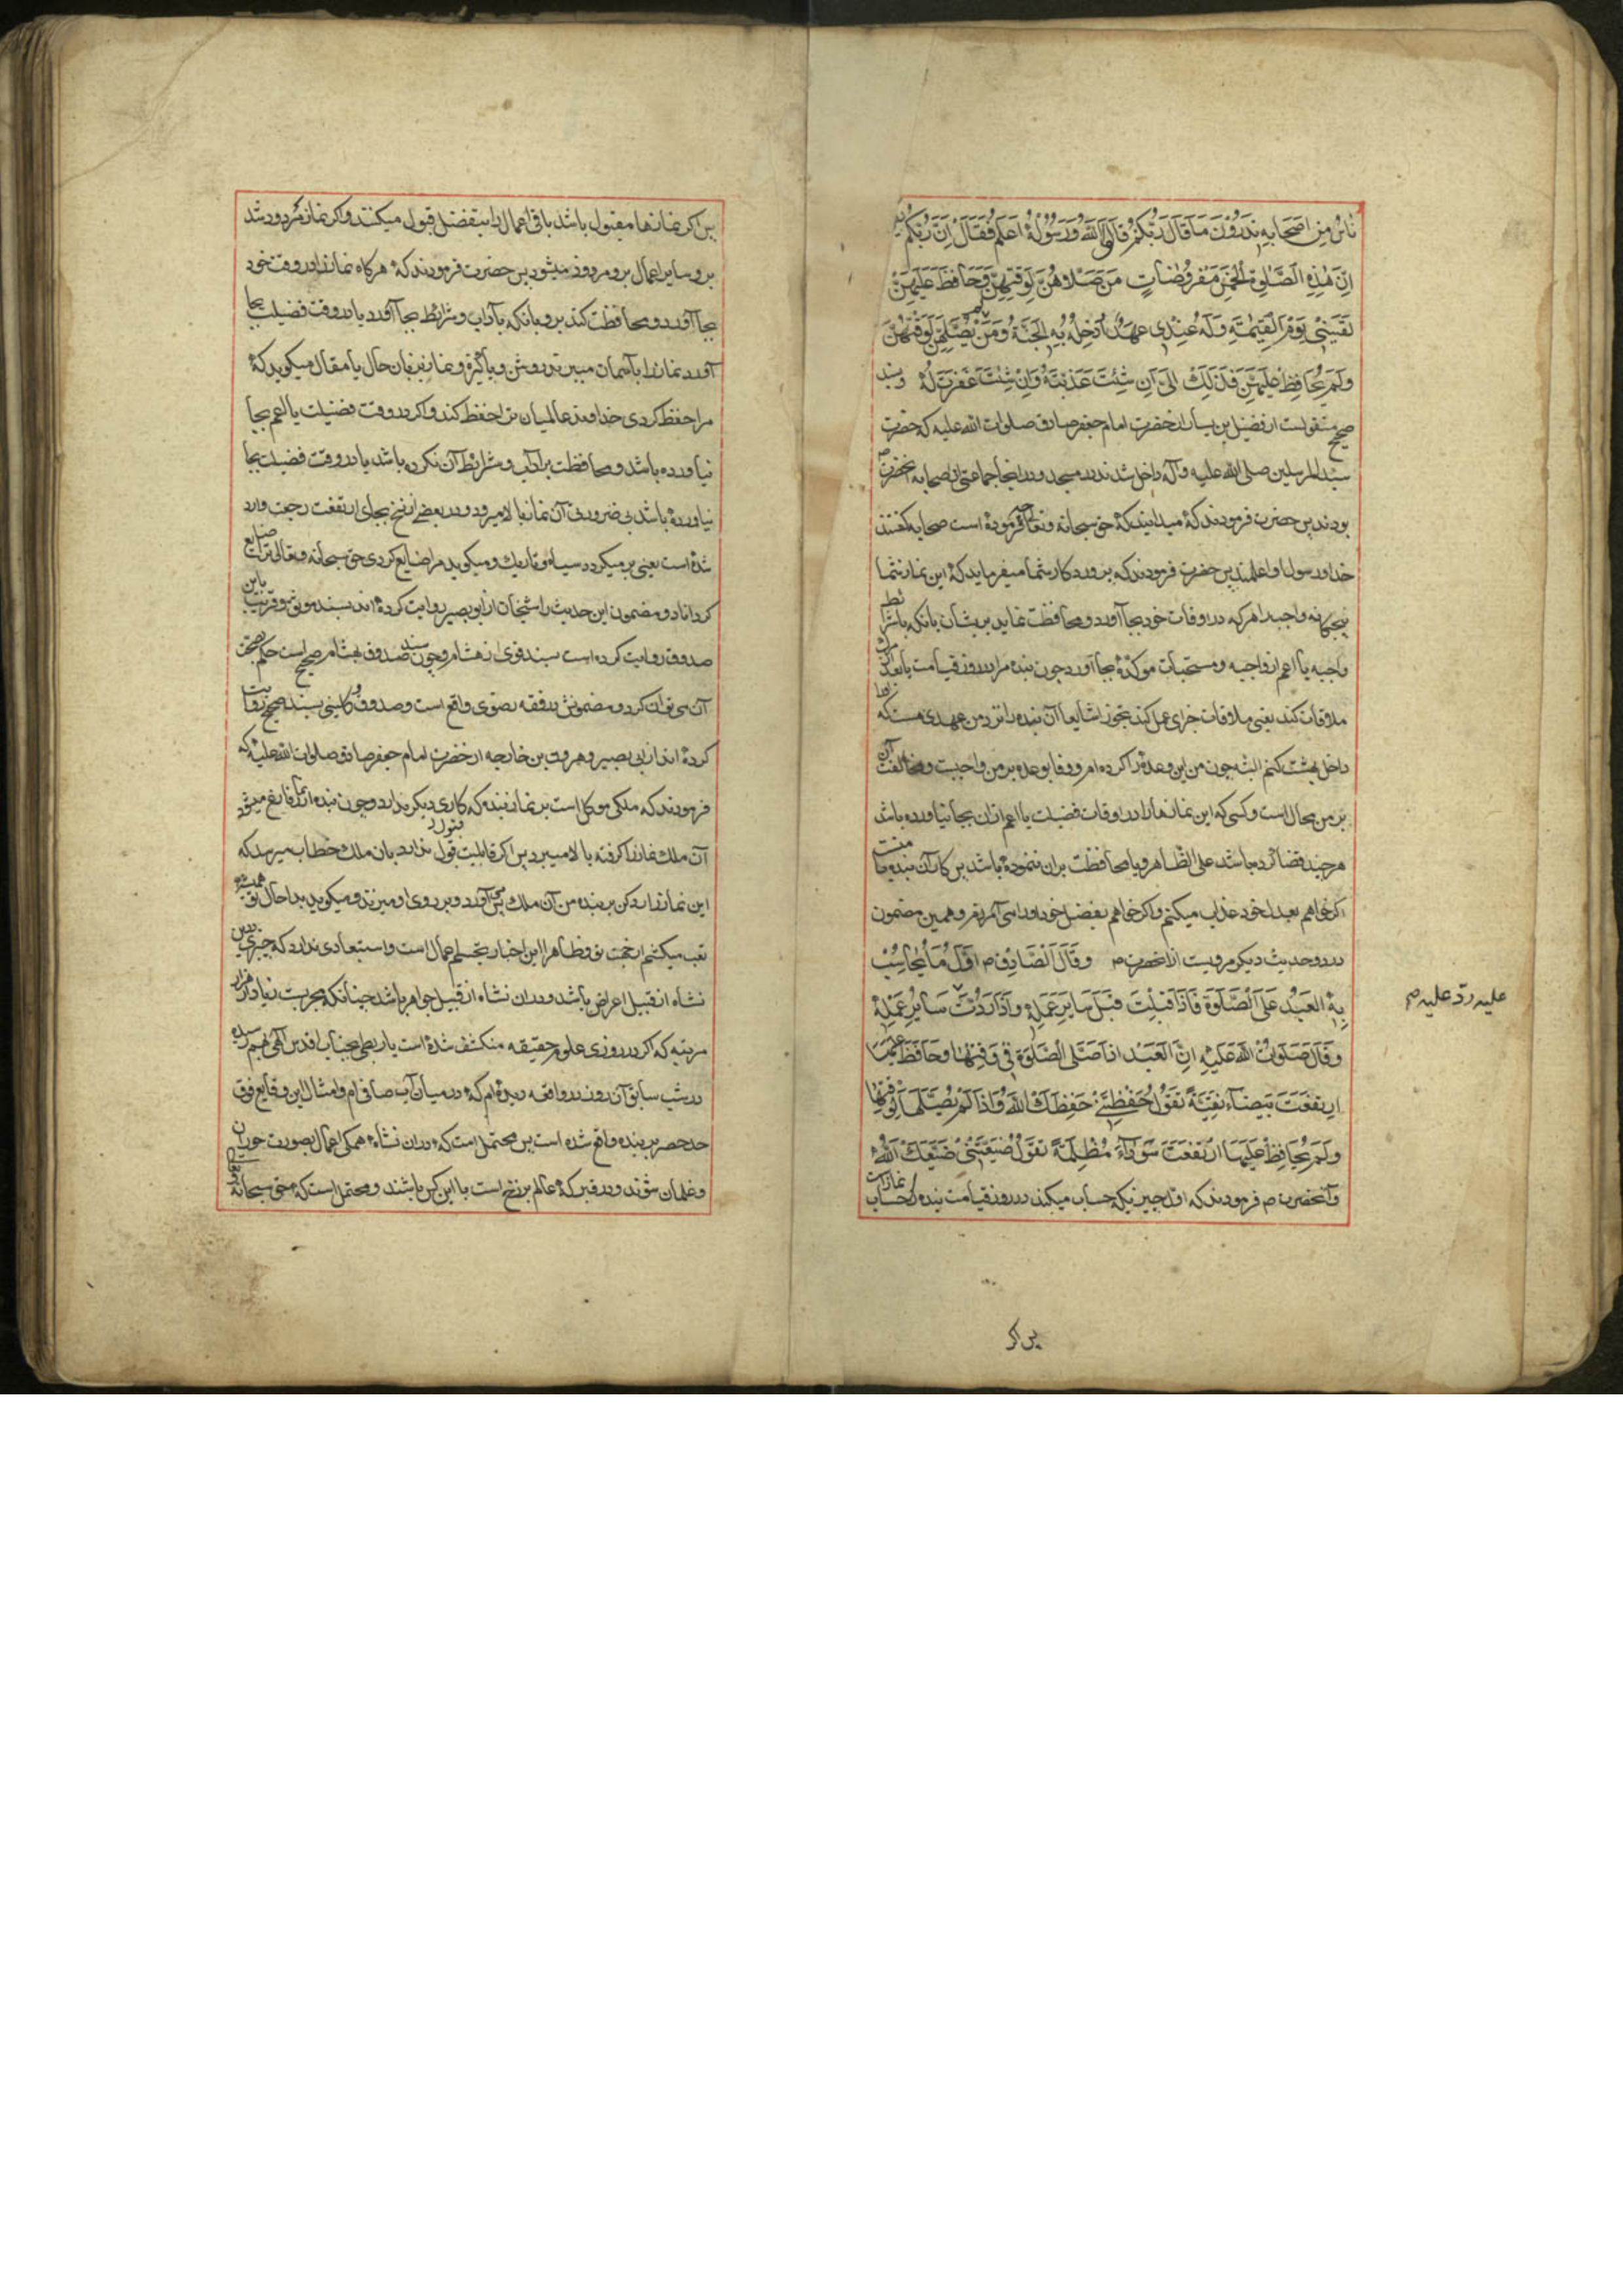 ناس من اصحابه فقال تدرون ما قال ربکم قالوا الله و رسوله اعلم فقال ان ربکم یقول
ان هذه الصلوة الخمس مفروضات من صلاهن لوقتهن و حافظ علیهن
لقینی یوم القیمة و له عندی عهد ادخله به الجنة و من لم یصلهن لوقتهن
و لم یحافظ علیهن فذلک الی ان شئت عذبته و ان شئت غفرت له و بسند
صحیح منقولست از فضیل بن یسار از حضرت امام جعفر صادق صلوات الله علیه که حضرت
سید المرسلین صلی الله علیه و آله داخل شدند در مسجد و در انجا جماعتی از صحابه آنحضرت
بودند پس حضرت فرمودند که میدانید که حق سبحانه و تعالی چه فرموده است صحابه گفتند
خدا و رسول او اعلمند پس حضرت فرمودند که پروردکار شما میفرماید که این نماز شما
پنجکانه واجبند هر که در اوقات خود بجا آورد و محافظت نماید بریشان بانکه با شرایط
واجبه یا اعم از واجبه و مستحبات موکده بجا آورد چون بنده مرا در روز قیامت
ملاقات کند یعنی ملاقات جزای عمل کند تجوزا شایعا آن بنده را نزد من عهدی هست که
داخل بهشت کنم البته چون من این وعده را کرده ام و وفا بوعده بر من واجبست و مخالفت آن
بر من محال است و کسی که این نمازها را در اوقات فضیلت یا اعم ازان بجا نیاورده باشد
هر چند قضا کرده باشد علی الظاهر و یا محافظت بران ننموده باشد پس کار آن بنده با منست
اکر خواهم بعدل خود عذاب میکنم و اکر خواهم بفضل خود او را می آمرزم و همین مضمون
در دو حدیث دیکر مرویست از آنحضرت ص و قال الصادق ص اول ما یحاسب
به العبد علی الصلوة فاذا قبلت قبل سایر عمله و اذا ردت سایر عمله
علیه ردّ علیه صح
و قال صلوات الله علیه ان العبد اذا صلی الصلوة فی وقتها و حافظ علیها
ارتفعت بیضاء نقیة تقول حفظتنی حفظک الله و اذا لم یصلها لوقتها
و لم یحافظ علیها ارتفعت سوداء مظلمة تقول ضیعتنی ضیعک الله
و آنحضرت ص فرمودند که اول چیزیکه حساب میکنند در روز قیامت بنده را حساب نماز است
پس اکر
پس اکر نمازها مقبول باشد باقی اعمال را بتفضل قبول میکنند و اکر نماز مردود شد
برو سایر اعمال برو مردود میشود پس حضرت فرمودند که هرکاه نماز را در وقت خود
بجا آورد و محافظت کند برو بانکه بآداب و شرایط بجا آورد یا در وقت فضیلت بجا
آورد نماز را بآسمان میبرند روشن و پاکیزه و نماز بزبان حال یا مقال میکوید که
مرا حفظ کردی خداوند عالمیان ترا حفظ کند و اکر در وقت فضیلت یا اعم بجا
نیاورده باشد و محافظت بر آداب و شرایط آن نکرده باشد یا در وقت فضیلت بجا
نیاورده باشد بی ضرورتی آن نماز بالا میرود و در بعضی از نسخ بجای ارتفعت رجعت وارد
شده است یعنی بر میکردد سیاه و تاریک و میکوید مرا ضایع کردی حق سبحانه و تعالی ترا ضایع
کرداناد و مضمون این حدیث را شیخان از ابوبصیر روایت کرده اند بسند موثق و قریب باین
صدوق روایت کرده است بسند قوی از هشام و چون سند صدوق بهشام صحیح است حکم بصحت
آن می توان کرد و مضمونش در فقه رضوی واقع است و صدوق و کلینی بسند صحیح روایت
کرده اند از ابی بصیر و هرون بن خارجه از حضرت امام جعفر صادق صلوات الله علیه که
فرمودند که ملکی موکل است بر نماز بنده که کاری دیکر ندارد و چون بنده از نماز فارغ میشود
آن ملک نماز را کرفته بالا میبرد پس اکر قابلیت قبول ندارد بان ملک خطاب میرسد که
این نماز را رد کن بر بنده من آن ملک پس می آورد و بر روی او میزند و میکوید بدا حال تو همیشه
تعب میکشم از جهت تو و ظاهرا این اخبار تجسم اعمال است و استبعادی ندارد که چیزی درین
نشاه از قبیل اعراض باشد و دران نشاه از قبیل جواهر باشد چنانکه مجربست زیاده از هزار
مرتبه که اکر در روزی علوم حقیقه منکشف شده است یا ربطی بجناب اقدس الهی بهم رسیده
در شب سابق آن روز در واقعه دیده ام که در میان آب صافی ام و امثال این وقایع فوق
حد حصر بر بنده واقع شده است پس محتمل است که دران نشاه همکی اعمال بصورت حوران
و غلمان شوند و در قبر که عالم برزخ است با این کس باشند و محتمل است که حق سبحانه و تعالی